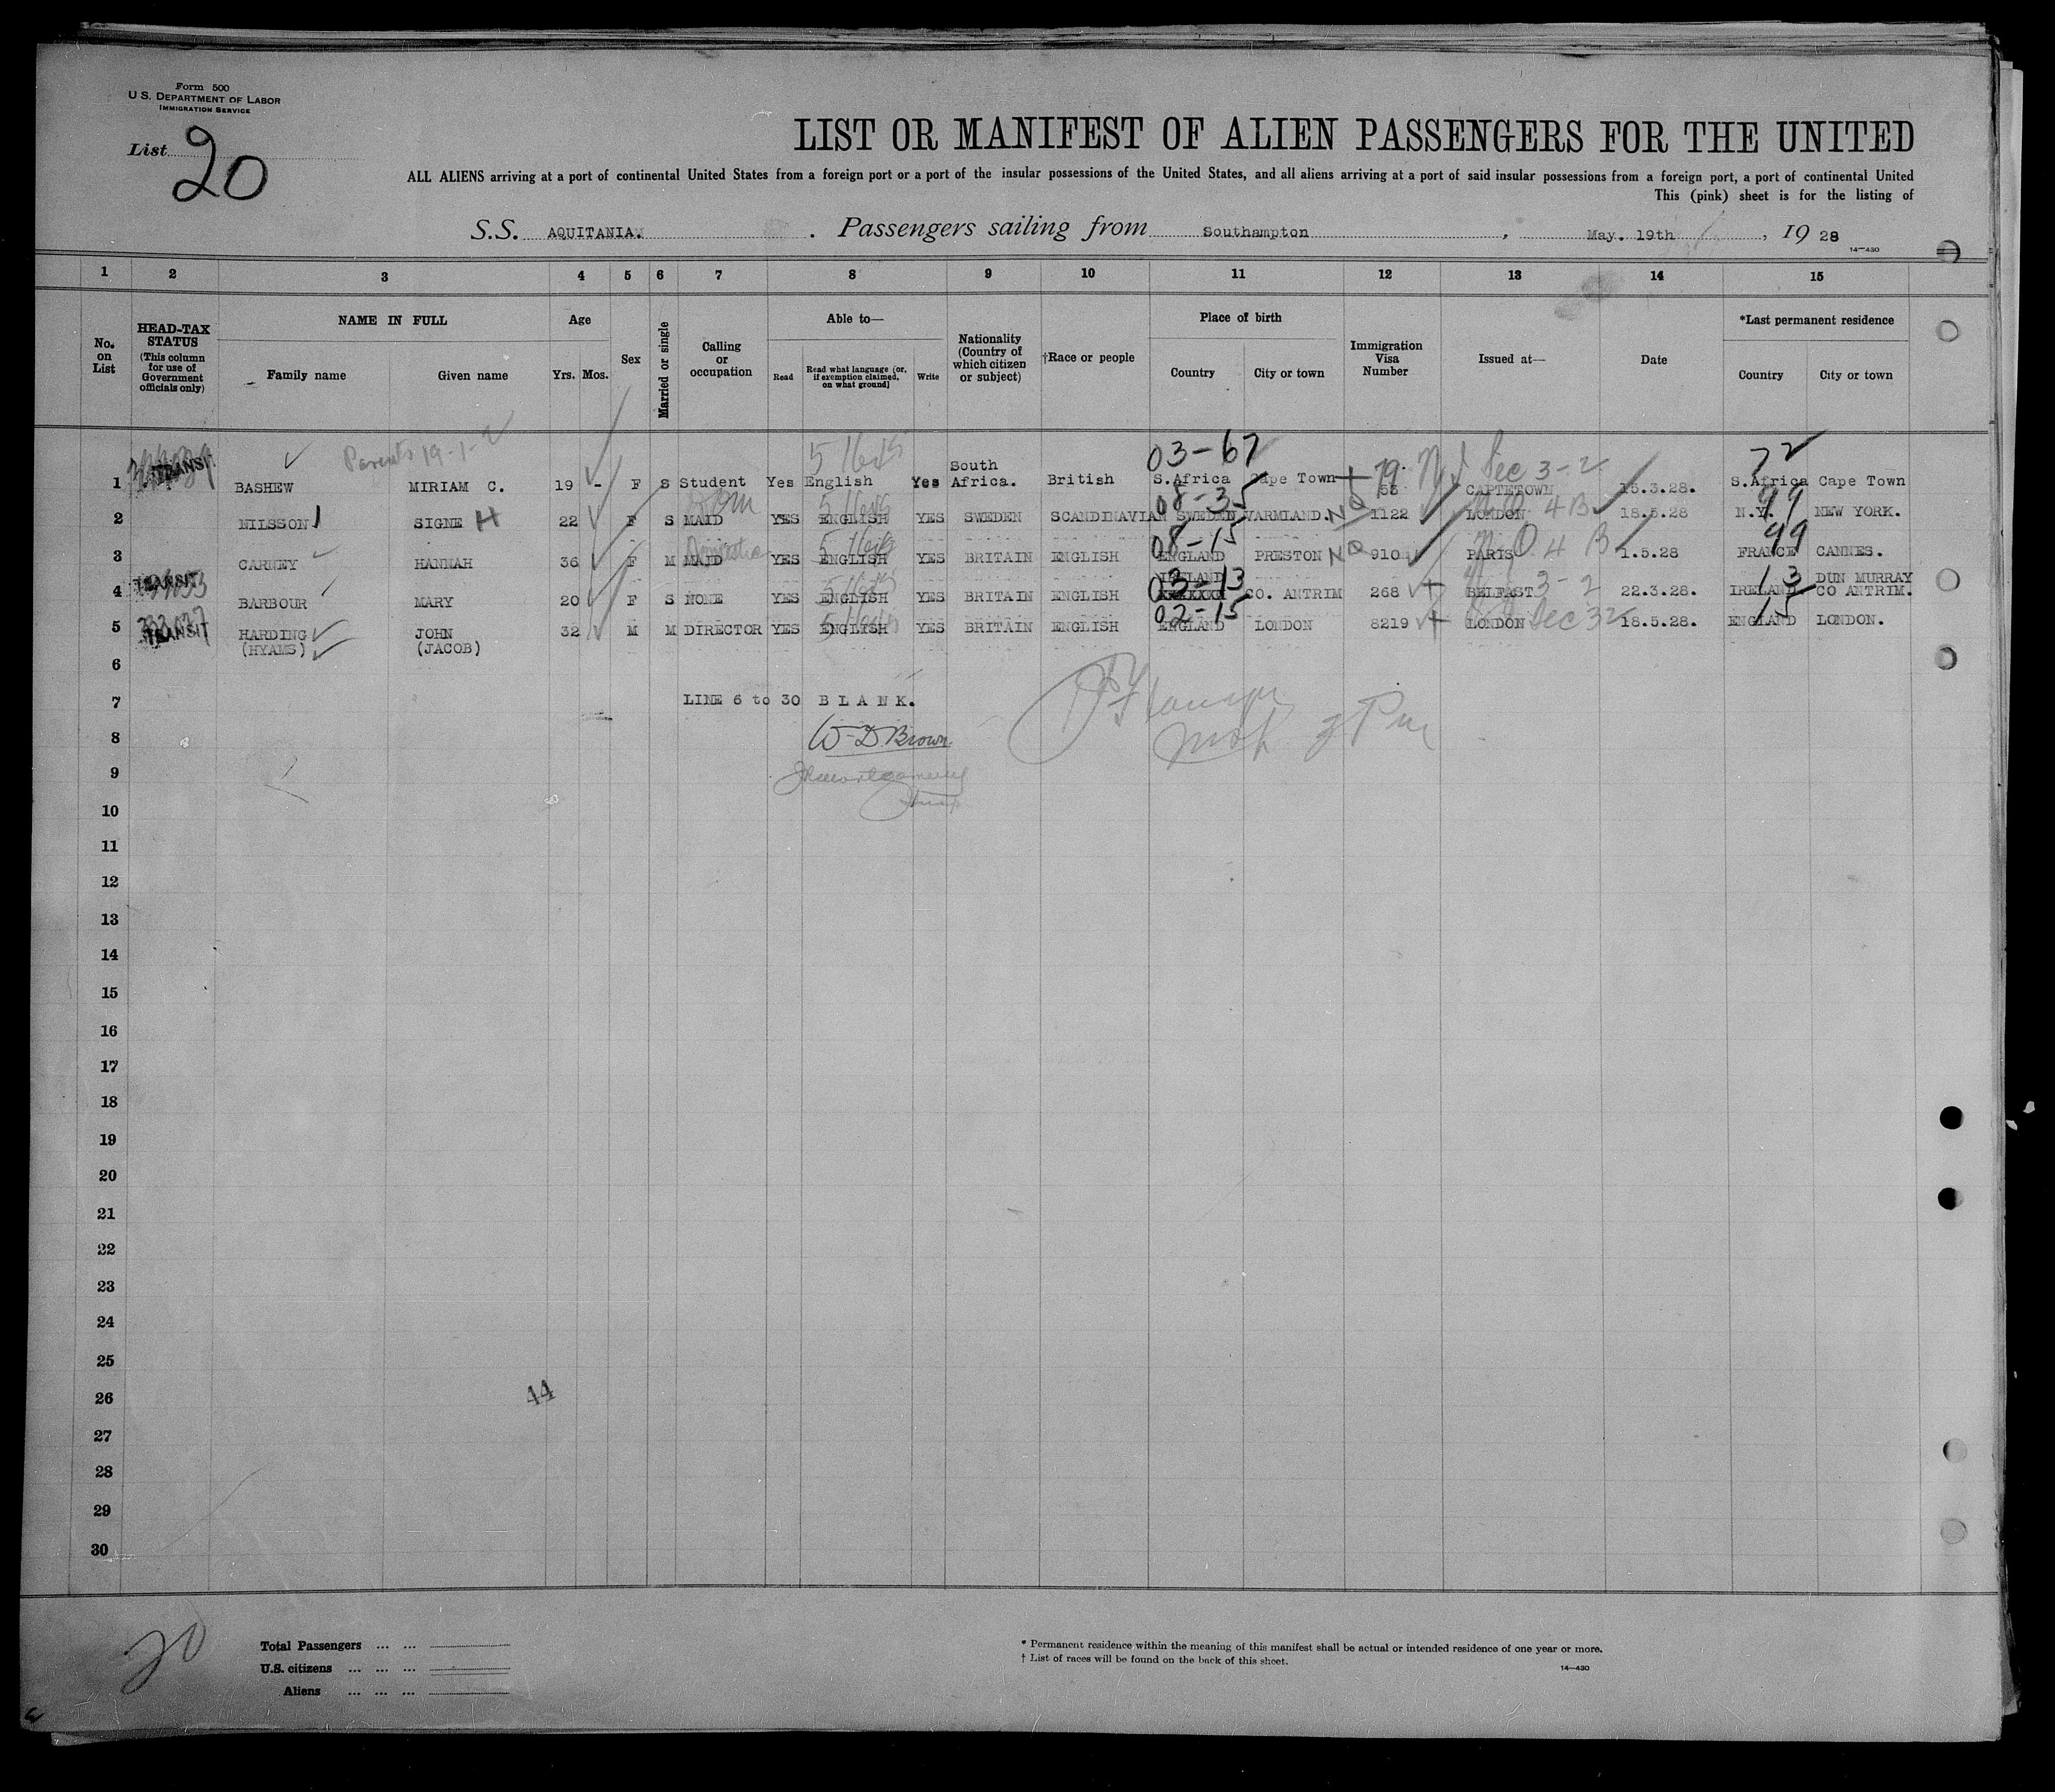 Form 500
U. S. DEPARTMENT OF LABOR
IMMIGRATION SERVICE
List 20
LIST OR MANIFEST OF ALIEN PASSENGERS FOR THE UNITED
ALL ALIENS arriving at a port of continental United States from a foreign port or a port of the insular possessions of the United States, and all aliens arriving at a port of said insular possessions from a foreign port, a port of continental United
This (pink) sheet is for the listing of
S.S. AQUITANIA. Passengers sailing from Southampton, May. 19th, 1928
14—430
1 2 3 4 5 6 7 8 9 10 11 12 13 14 15
No. on List
HEAD-TAX STATUS (This column for use of Government officials only)
NAME IN FULL
Family name Given name
Age
Yrs. Mos.
Sex
Married or single
Calling or occupation
Able to—
Read Read what language (or, if exemption claimed, on what ground) Write
Nationality (Country of which citizen or subject)
†Race or people
Place of birth
Country City or town
Immigration Visa Number
Issued at—
Date
*Last permanent residence
Country City or town
Parents 19-1-2
03-67 79 Sec 3-2 72
1 TRANSIT BASHEW MIRIAM C. 19 - F S Student Yes English Yes South Africa. British S.Africa Cape Town 53 CAPTETOWN 15.3.28. S.Africa Cape Town
08-35 NQ 4B 99
2 NILSSON SIGNE H 22 F S MAID YES ENGLISH YES SWEDEN SCANDINAVIAN SWEDEN VARMLAND. 1122 LONDON 18.5.28 N.Y. NEW YORK.
Domestic 08-15 NQ 4 B 99
3 CARNEY HANNAH 36 F M MAID YES ENGLISH YES BRITAIN ENGLISH ENGLAND PRESTON 910 PARIS 1.5.28 FRANCE CANNES.
03-13 3-2 13
4 TRANSIT BARBOUR MARY 20 F S NONE YES ENGLISH YES BRITAIN ENGLISH IRELAND XXXXXXX CO. ANTRIM 268 BELFAST 22.3.28. IRELAND DUN MURRAY CO ANTRIM.
02-15 Sec 32 15
5 TRANSIT HARDING JOHN 32 M M DIRECTOR YES ENGLISH YES BRITAIN ENGLISH ENGLAND LONDON 8219 LONDON 18.5.28. ENGLAND LONDON.
(HYAMS) (JACOB)
6
7 LINE 6 to 30 BLANK.
8 W D Brown
9
10
11
12
13
14
15
16
17
18
19
20
21
22
23
24
25
26 44
27
28
29
30
20
Total Passengers ... ...
U.S. citizens ... ... ...
Aliens ... ... ...
* Permanent residence within the meaning of this manifest shall be actual or intended residence of one year or more.
† List of races will be found on the back of this sheet.
14—430